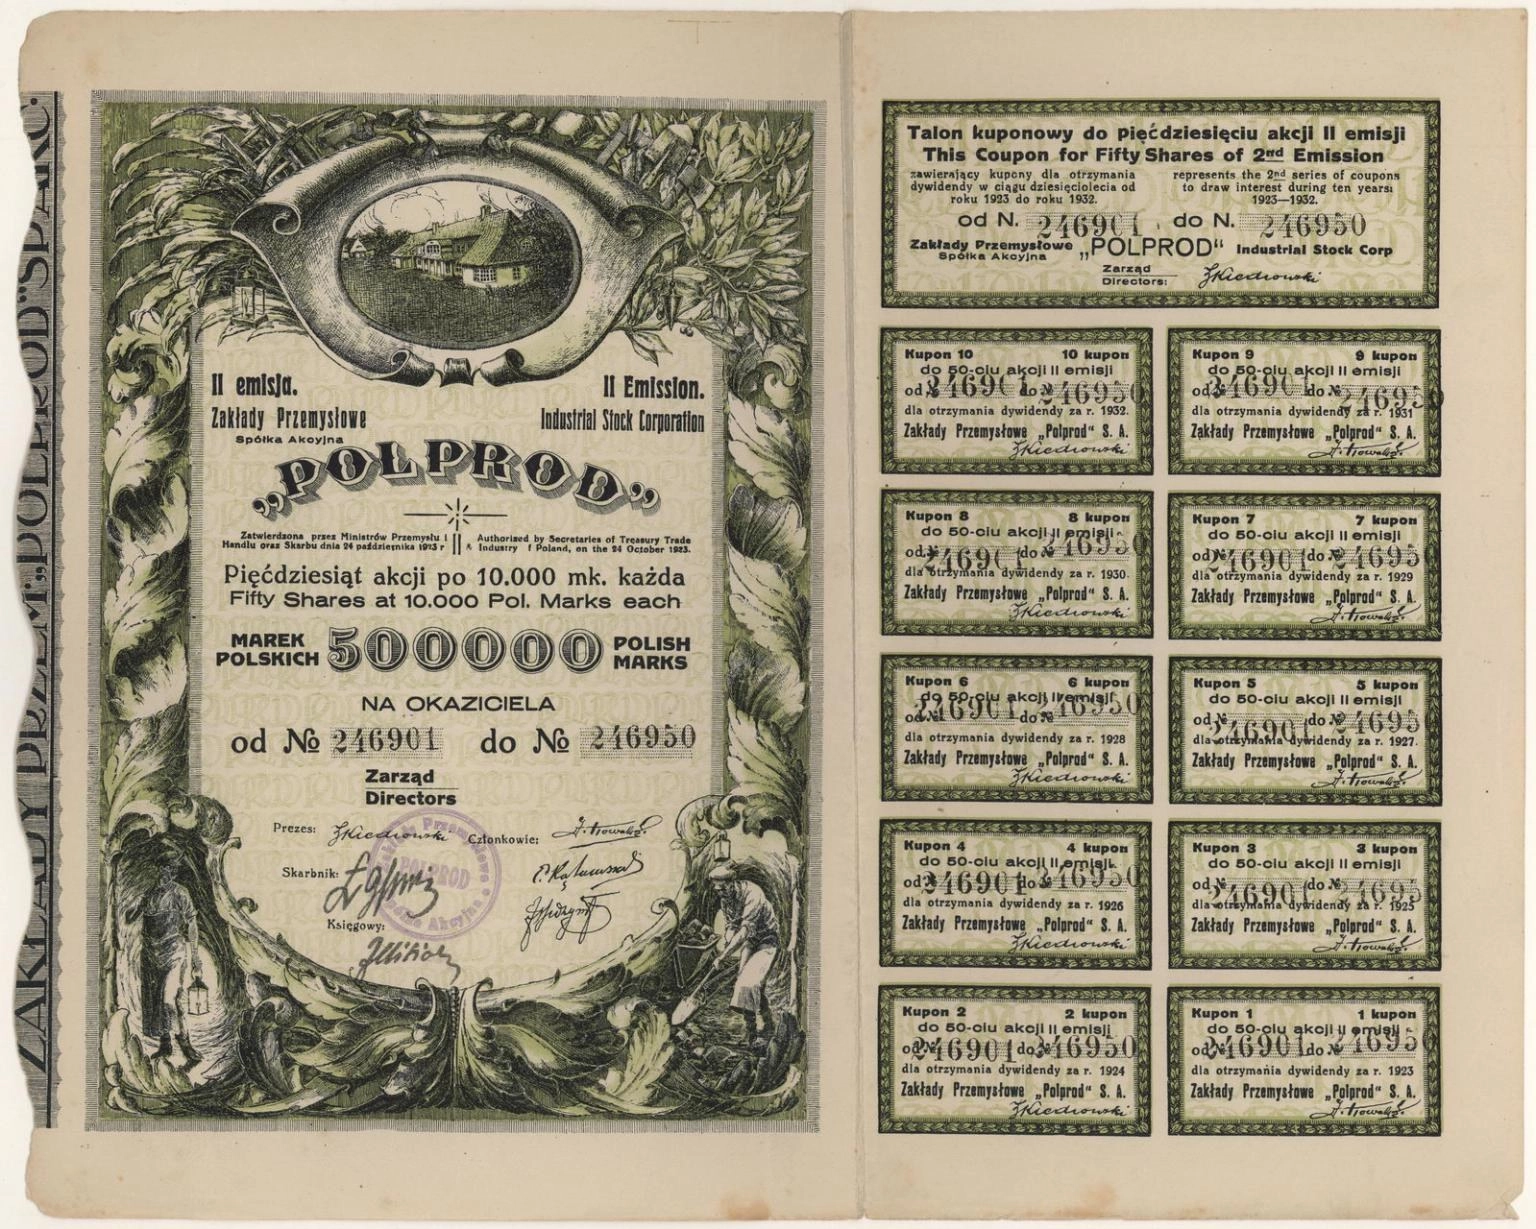 ZAKŁADY PRZEM. „POLPROD" SP. AKC.
II emisja.
II Emission.
Zakłady Przemysłowe
Spółka Akcyjna
Industrial Stock Corporation
„POLPROD”
Zatwierdzona przez Ministrów Przemysłu i
Handlu oraz Skarbu dnia 24 października 1923 r
Authorized by Secretaries of Treasury Trade
Industry f Poland, on the 24 October 1923.
Pięćdziesiąt akcji po 10.000 mk. każda
Fifty Shares at 10.000 Pol. Marks each
MAREK
POLSKICH
500000
POLISH
MARKS
NA OKAZICIELA
od № 246901 do № 246950
Zarząd
Directors
Prezes: ZKiedrowski Członkowie:
Skarbnik:
Księgowy:
POLPROD
Talon kuponowy do pięćdziesięciu akcji II emisji
This Coupon for Fifty Shares of 2nd Emission
zawierający kupony dla otrzymania
dywidendy w ciągu dziesięciolecia od
roku 1923 do roku 1932.
represents the 2nd series of coupons
to draw interest during ten years:
1923—1932.
od N. 246901 do N. 246950
Zakłady Przemysłowe
Spółka Akcyjna
„POLPROD" Industrial Stock Corp
Zarząd
Directors: ZKiedrowski
Kupon 10 10 kupon
do 50-ciu akcji II emisji
od № 246901 do № 246950
dla otrzymania dywidendy za r. 1932.
Zakłady Przemysłowe „Polprod" S. A.
ZKiedrowski
Kupon 9 9 kupon
do 50-ciu akcji II emisji
od № 246901 do № 246950
dla otrzymania dywidendy za r. 1931
Zakłady Przemysłowe „Polprod" S. A.
Kupon 8 8 kupon
do 50-ciu akcji II emisji
od № 246901 do № 246950
dla otrzymania dywidendy za r. 1930.
Zakłady Przemysłowe „Polprod" S. A.
ZKiedrowski
Kupon 7 7 kupon
do 50-ciu akcji II emisji
od № 246901 do № 246950
dla otrzymania dywidendy za r. 1929
Zakłady Przemysłowe „Polprod" S. A.
Kupon 6 6 kupon
do 50-ciu akcji II emisji
od № 246901 do № 246950
dla otrzymania dywidendy za r. 1928
Zakłady Przemysłowe „Polprod" S. A.
ZKiedrowski
Kupon 5 5 kupon
do 50-ciu akcji II emisji
od № 246901 do № 24695
dla otrzymania dywidendy za r. 1927.
Zakłady Przemysłowe „Polprod" S. A.
Kupon 4 4 kupon
do 50-ciu akcji II emisji
od № 246901 do № 246950
dla otrzymania dywidendy za r. 1926
Zakłady Przemysłowe „Polprod" S. A.
ZKiedrowski
Kupon 3 3 kupon
do 50-ciu akcji II emisji
od № 246901 do № 24695
dla otrzymania dywidendy za r. 1925
Zakłady Przemysłowe „Polprod" S. A.
Kupon 2 2 kupon
do 50-ciu akcji II emisji
od № 246901 do № 246950
dla otrzymania dywidendy za r. 1924
Zakłady Przemysłowe „Polprod" S. A.
ZKiedrowski
Kupon 1 1 kupon
do 50-ciu akcji II emisji
od № 246901 do № 246950
dla otrzymania dywidendy za r. 1923
Zakłady Przemysłowe „Polprod" S. A.